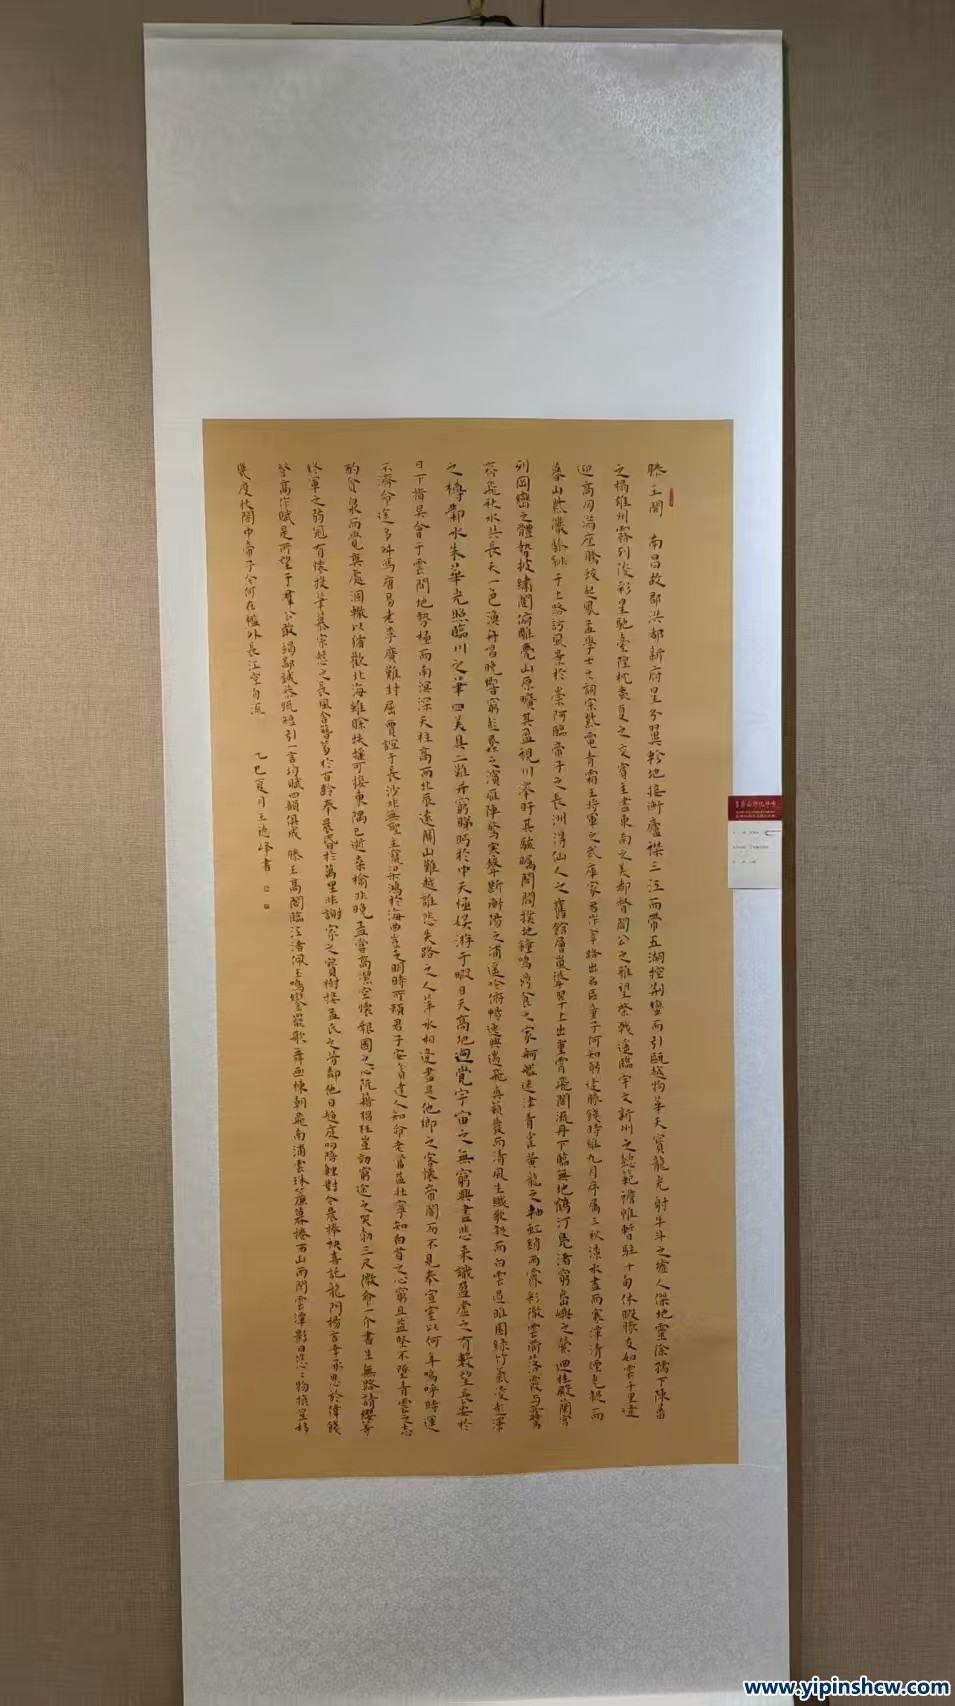 滕王閣 南昌故郡洪都新府星分翼軫地接衡廬襟三江而帶五湖控荆蠻而引甌越物華天寶龍光射牛斗之墟人傑地靈徐孺下陳蕃
之榻雄州霧列俊彩星馳臺隍枕夷夏之交賓主盡東南之美都督閻公之雅望棨戟遙臨宇文新州之懿範襜帷暫駐十旬休暇勝友如雲千里逢
迎高朋滿座騰蛟起鳳孟學士之詞宗紫電青霜王將軍之武庫家君作宰路出名區童子何知躬逢勝餞時維九月序属三秋潦水盡而寒潭清煙光凝而
暮山紫儼驂騑于上路訪風景於崇阿臨帝子之長洲得仙人之舊館層巒聳翠上出重霄飛閣流丹下臨無地鶴汀鳧渚窮島嶼之縈迴桂殿蘭宮
列岡巒之體勢披繡闥俯雕甍山原曠其盈視川澤盱其駭矚閭閻撲地鐘鳴鼎食之家舸艦迷津青雀黃龍之軸虹銷雨霽彩徹雲衢落霞与孤鶩
齊飛秋水共長天一色漁舟唱晚響窮彭蠡之濱雁陣驚寒聲斷衡陽之浦遙吟俯暢逸興遄飛爽籟發而清風生纖歌凝而白雲遏睢園綠竹氣凌彭澤
之樽鄴水朱華光照臨川之筆四美具二難并窮睇眄於中天極娱游于暇日天高地迥覺宇宙之無窮興盡悲來識盈虛之有數望長安於
日下指吴會于雲間地勢極而南溟深天柱高而北辰遠關山難越誰悲失路之人萍水相逢盡是他鄉之客懷帝閽而不見奉宣室以何年嗚呼時運
不濟命途多舛馮唐易老李廣難封屈賈誼于長沙非無聖主竄梁鴻於海曲豈乏明時所賴君子安貧達人知命老當益壯寧知白首之心窮且益堅不墜青雲之志
酌貪泉而覺爽處涸轍以猶歡北海雖賒扶摇可接東隅已逝桑榆非晚孟嘗高潔空懷報國之心阮籍猖狂豈效窮途之哭勃三尺微命一介書生無路請纓等
終軍之弱冠有懷投筆慕宗慤之長風舍簪笏於百齡奉晨昏於萬里非謝家之寶樹接孟氏之芳鄰他日趨庭叨陪鯉對今晨捧袂喜託龍門
登高作賦是所望于群公敢竭鄙誠恭疏短引一言均賦四韻俱成 滕王高閣臨江渚佩玉鳴鸞罷歌舞画棟朝飛南浦雲珠簾暮捲西山雨閒雲潭影日悠悠物換星移
幾度秋閣中帝子今何在檻外長江空自流
乙巳夏月王德峰書
www.yipinshcw.com